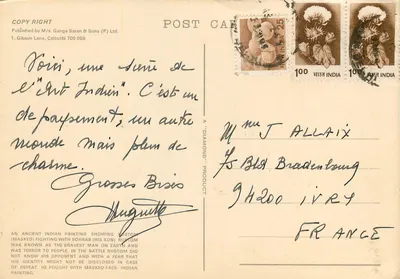 COPY RIGHT
Published by Mrs. Ganga Saran & Sons (P) Ltd.
1, Gibson Lane, Calcutta 700 069
Voici, une série de
l'"Art Indien". C'est un
dépaysement, un autre
monde mais plein de
charme.
Grosses Bises
Huguette
AN ANCIENT INDIAN PAINTING SHOWING
(MASKED) FIGHTING WITH SOHRAB (HIS SON)
WAS KNOWN AS THE BRAVEST MAN ON EARTH AND
WAS TERROR TO PEOPLE. IN THE BATTLE RUSTOM DID
NOT KNOW HIS OPPONENT AND WITH A FEAR THAT
HIS IDENTITY MIGHT NOT BE DISCLOSED IN CASE
OF DEFEAT HE FOUGHT WITH MASKED FACE. INDIAN
PAINTING.
A "DIAMOND" PRODUCT
POST CARD
25
1.00 भारत INDIA
1.00 भारत INDIA
Mme J ALLAIX
75 Bld Brandebourg
94200 IVRY
FRANCE